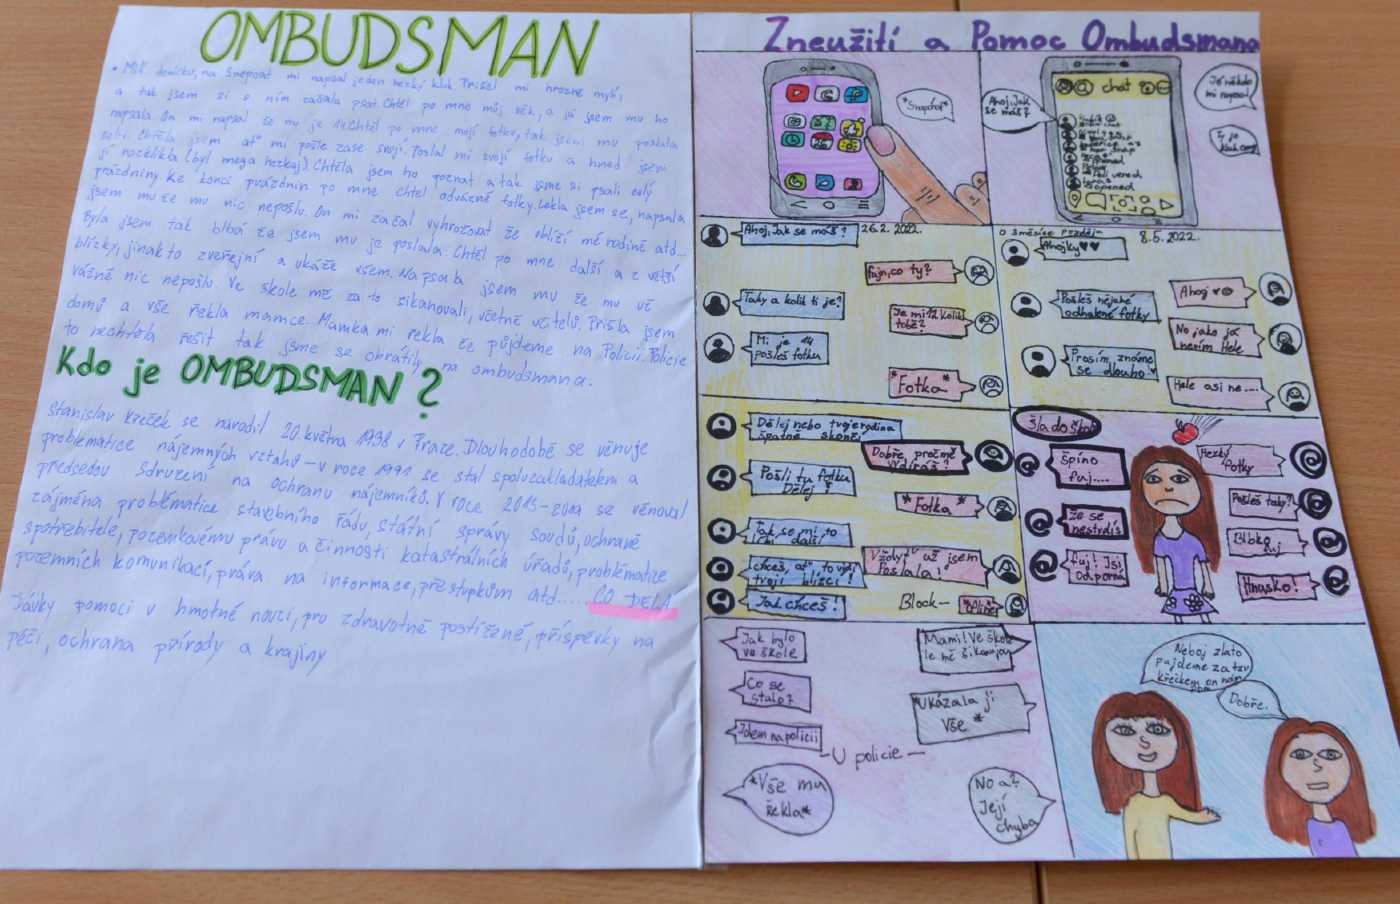 OMBUDSMAN
Milí deníčku, na Snepovat mi napsal jeden hezkí kluk. Přišel mi hrozně milí,
a tak jsem si s ním začala psát. Chtěl po mně můj věk, a já jsem mu ho
napsala. On mi napsal že mu je 14. Chtěl po mně mojí fotku, tak jsem mu poslala
selfi. Chtěla jsem ať mi pošle zase svojí. Poslal mi svojí fotku a hned jsem
jí rozklikla (byl mega hezkej). Chtěla jsem ho poznat a tak jsme si psali celý
prázdniny. Ke konci prázdnin po mně chtěl odvážné fotky. Lekla jsem se, napsala
jsem mu že mu nic nepošlu. On mi začal vyhrožovat že ublíží mé rodině atd...
Byla jsem tak blbá že jsem mu je poslala. Chtěl po mně další a z větší
blízky, jinak to zveřejní a ukáže všem. Napsala jsem mu že mu už
vážně nic nepošlu. Ve škole mě za to šikanovali, včetně učitelů. Přišla jsem
domů a vše řekla mamce. Mamka mi řekla že půjdeme na Policii. Policie
to nechtěla řešit tak jsme se obrátily na ombudsmana.
Kdo je OMBUDSMAN?
Stanislav Křeček se narodil 20. května 1938 v Praze. Dlouhodobě se věnuje
problematice nájemných vztahů – v roce 1991 se stal spoluzakladatelem a
předsedou Sdružení na ochranu nájemníků. V roce 2013-2020 se věnoval
zájména problematice stavebního řádu, státní správy soudů, ochraně
spotřebitele, pozemkovému právu a činnosti katastrálních úřadů, problematize
pozemních komunikací, práva na informace, přestupkům atd..... CO DĚLÁ
Dávky pomoci v hmotné nouzi, pro zdravotně postižené, příspěvky na
péči, ochrana přírody a krajiny
Zneužití a Pomoc Ombudsmana
*Snapchat*
Ahoj, Jak
se máš?
chat
Jé někdo
mi napsal
Ty jo
Ahoj, Jak se máš? 26.2.2022.
fajn, co ty?
Taky a kolik ti je?
Je mi 12 kolik
tobě?
Mi je 14
pošleš fotku
*Fotka*
O 3 měsíce později 8.5.2022.
Ahojky♥♥
Ahoj
Pošleš nějaké
odhalené fotky
No jako já
nevím Hele
Prosím, známe
se dlouho
Hele asi ne....
Dělej nebo tvoje rodina
špatně skončí
Dobře, pročmě
vydíráš?
Pošli tu fotku
Dělej!
*Fotka*
Vždyť už jsem
Poslala!
chceš, ať to vidí
tvoji blízcí!
Jak chceš!
Block—
Šla do školy
Špíno
fuj....
Hezký
fotky
že se
nestydíš
Pošleš taky?
fuj! Jsi
odporná
Blbko
fuj
Hnusko!
Jak bylo
ve škole
Mami! Ve škole
Co se
stalo?
*Ukázala ji
vše*
Jdem na policii
—U policie—
*Vše mu
řekla*
No a?
Její
chyba
Neboj zlato
pujdeme za tzv
křečkem on nám
Dobře.